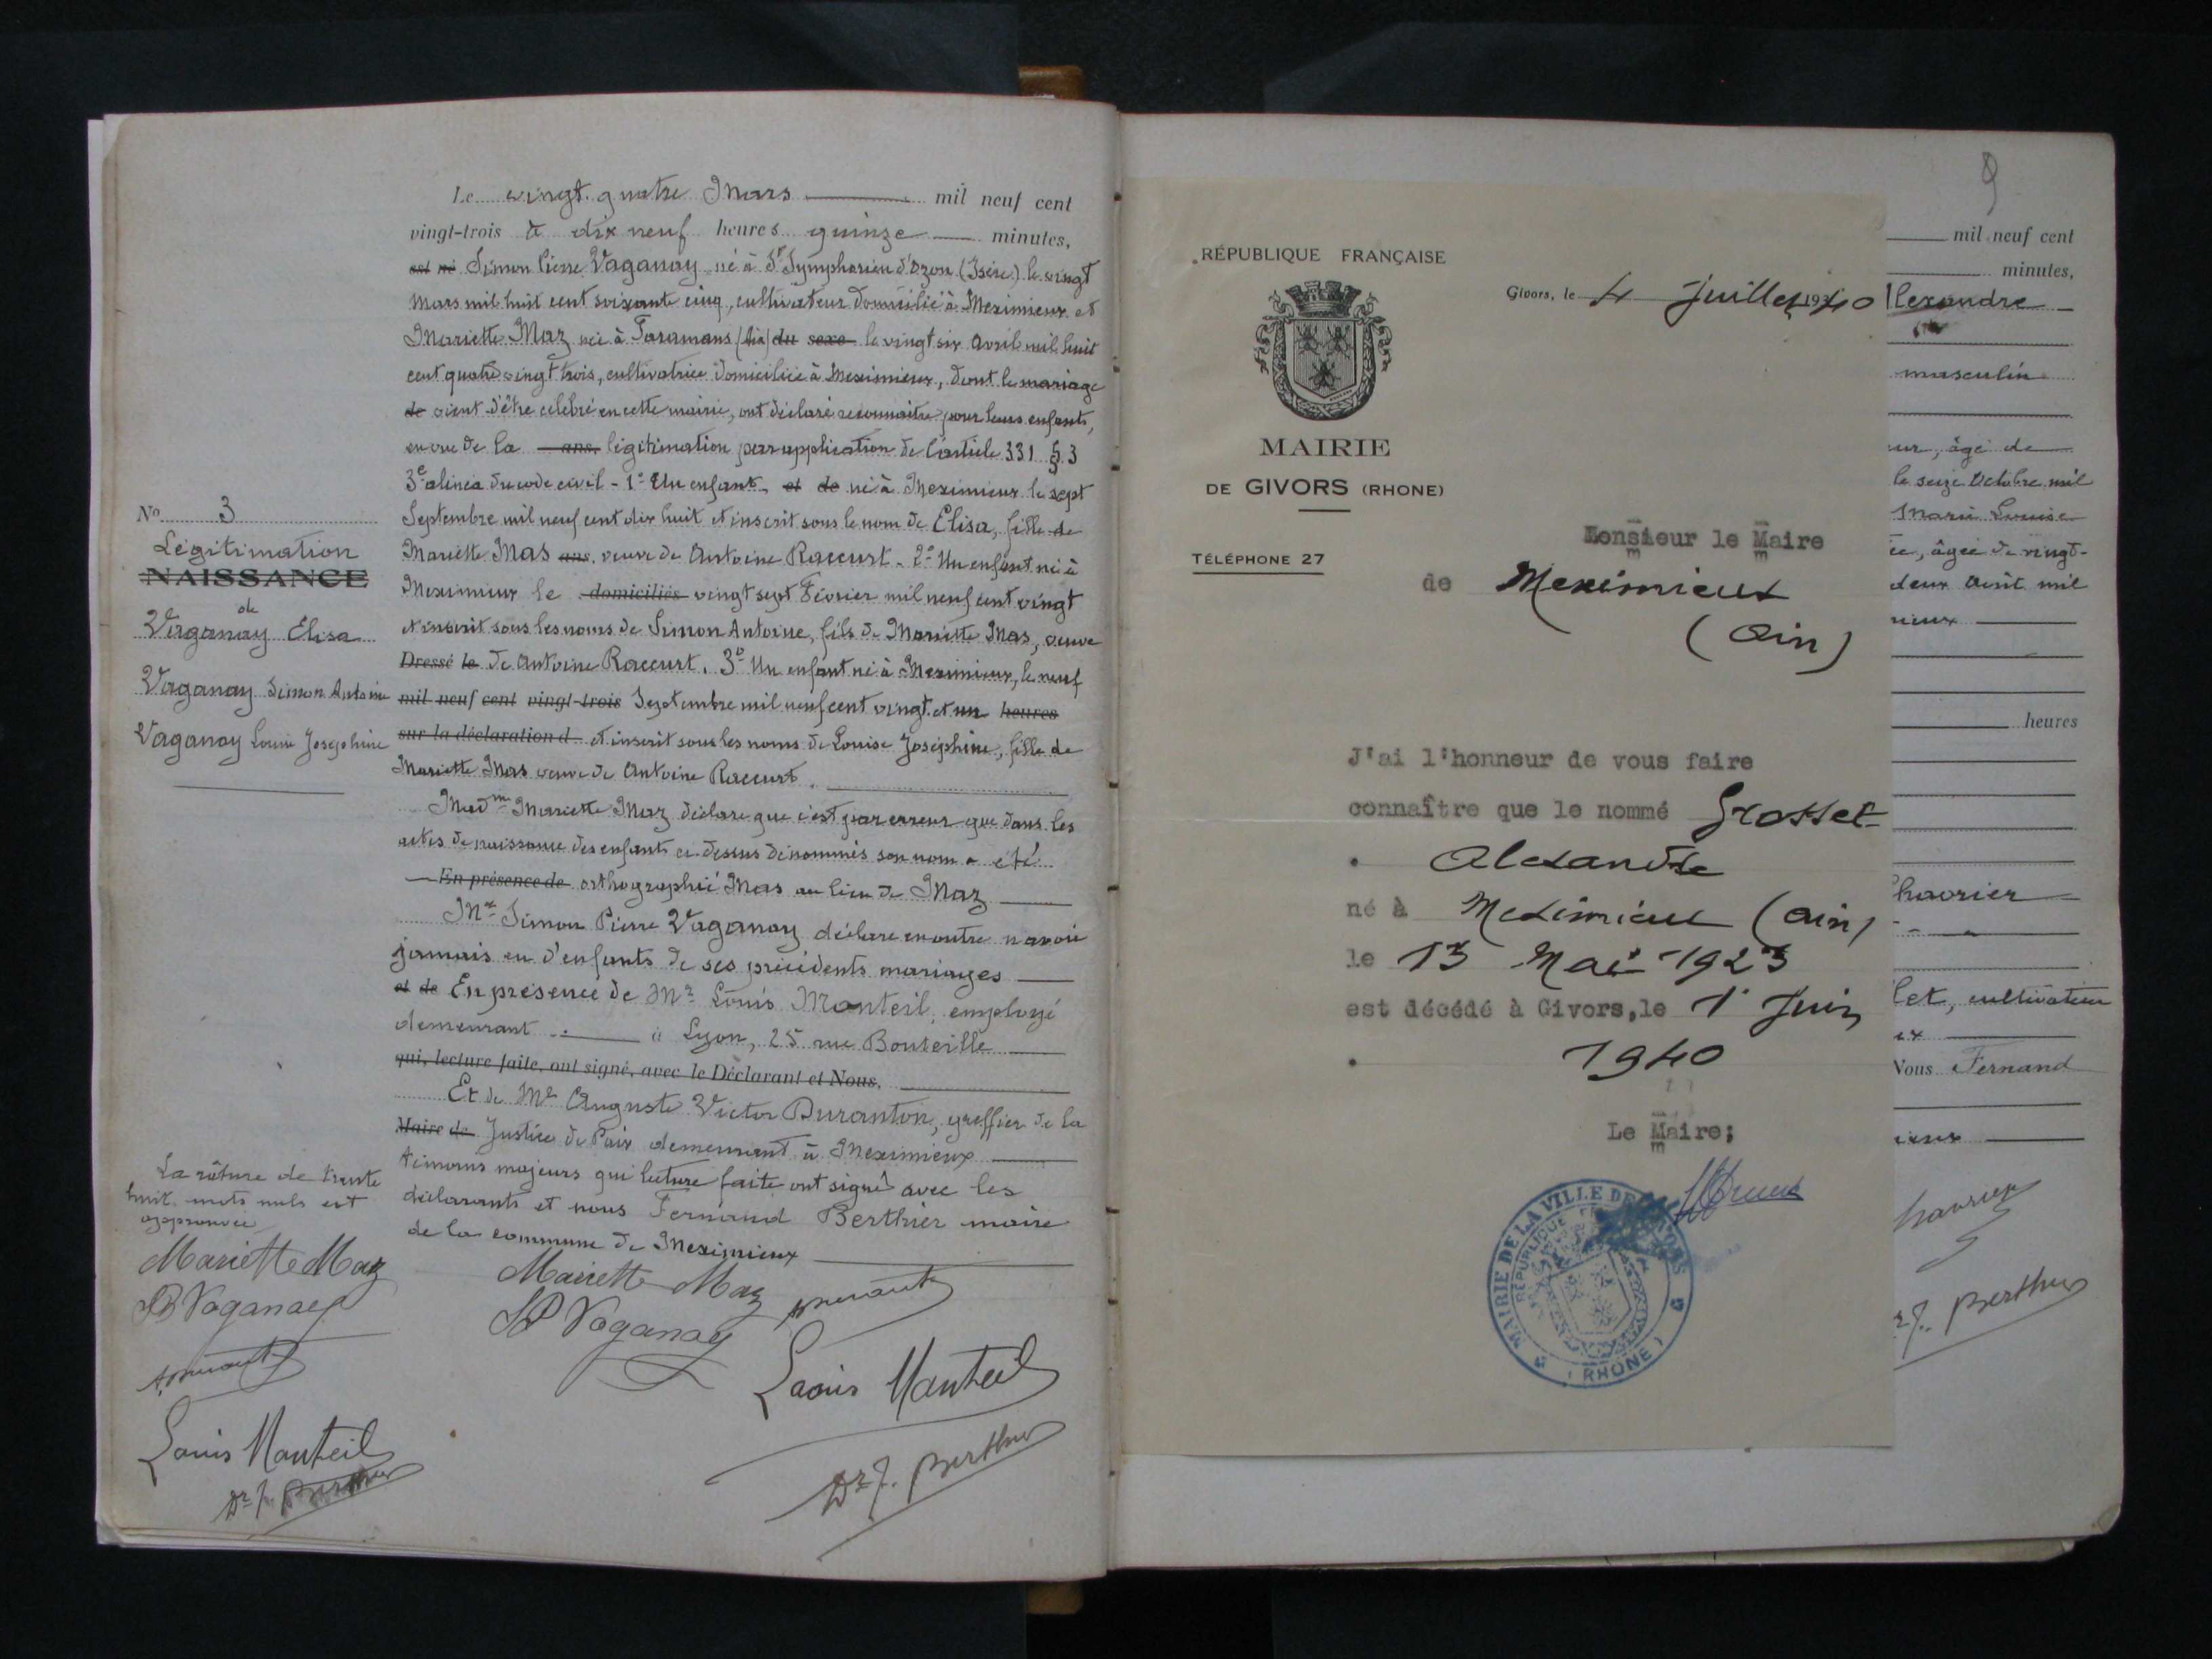 Le vingt-quatre Mars mil neuf cent
vingt-trois à dix neuf heures quinze minutes,
est né Simon Pierre Vaganay né à St Symphorien d'Ozon (Isère) le vingt
mars mil huit cent soixante cinq, cultivateur domicilié à Meximieux et
Mariette Maz née à Faramans (Ain) du sexe le vingt six Avril mil huit
cent quatre vingt trois, cultivatrice domiciliée à Meximieux, dont le mariage
de vient d'être célébré en cette mairie, ont déclaré reconnaître pour leurs enfants,
en vue de la ans, légitimation par application de l'article 331 § 3
3e alinéa du code civil - 1° Un enfant et de né à Meximieux le sept
Septembre mil neuf cent dix huit et inscrit sous le nom de Elisa, fille de
Mariette Mas ans, veuve de Antoine Raccurt - 2° Un enfant né à
Meximieux le domiciliés vingt sept Février mil neuf cent vingt
et inscrit sous les noms de Simon Antoine, fils de Mariette Mas, veuve
Dressé le de Antoine Raccurt. 3° Un enfant né à Meximieux, le neuf
mil neuf cent vingt-trois Septembre mil neuf cent vingt et un heures
sur la déclaration d et inscrit sous les noms de Louise Joséphine, fille de
Mariette Mas veuve de Antoine Raccurt.
Madme Mariette Maz déclare que c'est par erreur que dans les
actes de naissance des enfants ci-dessus dénommés son nom a été
En présence de orthographié Mas au lieu de Maz
Mr Simon Pierre Vaganay déclare en outre n'avoir
jamais eu d'enfants de ses précédents mariages
et de En présence de Mr Louis Monteil, employé
demeurant à Lyon, 25 rue Bouteille
qui, lecture faite, ont signé, avec le Déclarant et Nous.
Et de Mr Auguste Victor Duranton, greffier de la
Maire de Justice de Paix demeurant à Meximieux
témoins majeurs qui lecture faite ont signé avec les
déclarants et nous Fernand Berthier maire
de la commune de Meximieux
Mariette Maz
SP Vaganay
Louis Monteil
Dr F. Berthier
No 3
Légitimation
NAISSANCE
de
Vaganay Elisa
Vaganay Simon Antoine
Vaganay Louise Joséphine
La rature de trente
huit mots nuls est
approuvée
Mariette Maz
SP Vaganay
Louis Monteil
Dr F. Berthier
RÉPUBLIQUE FRANÇAISE
MAIRIE
DE GIVORS (RHONE)
TÉLÉPHONE 27
Givors, le 4 Juillet 1940
Monsieur le Maire
de Meximieux
(Ain)
J'ai l'honneur de vous faire
connaître que le nommé Grosset
Alexandre
né à Meximieux (Ain)
le 13 Mai 1923
est décédé à Givors, le 1° Juin
1940
Le Maire;
MAIRIE DE LA VILLE DE GIVORS
RÉPUBLIQUE
(RHÔNE)
9
mil neuf cent
minutes,
lexandre
masculin
ur, âgé de
le seize Octobre mil
Marie Louise
ée, âgée de vingt-
deux Août mil
mieux
heures
havrier
let, cultivateur
Nous Fernand
ieux
havrier
F. Berthier